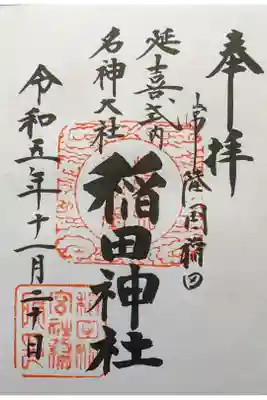 奉拝
常陸国稲田
延喜式内
名神大社
稲田神社
令和五年十一月二十日